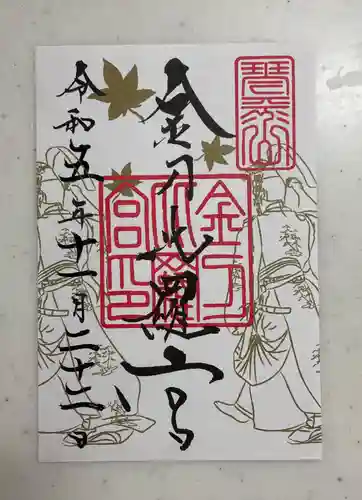 琴平山
金刀比羅宮
金刀比羅宮印
令和五年十一月二十二日